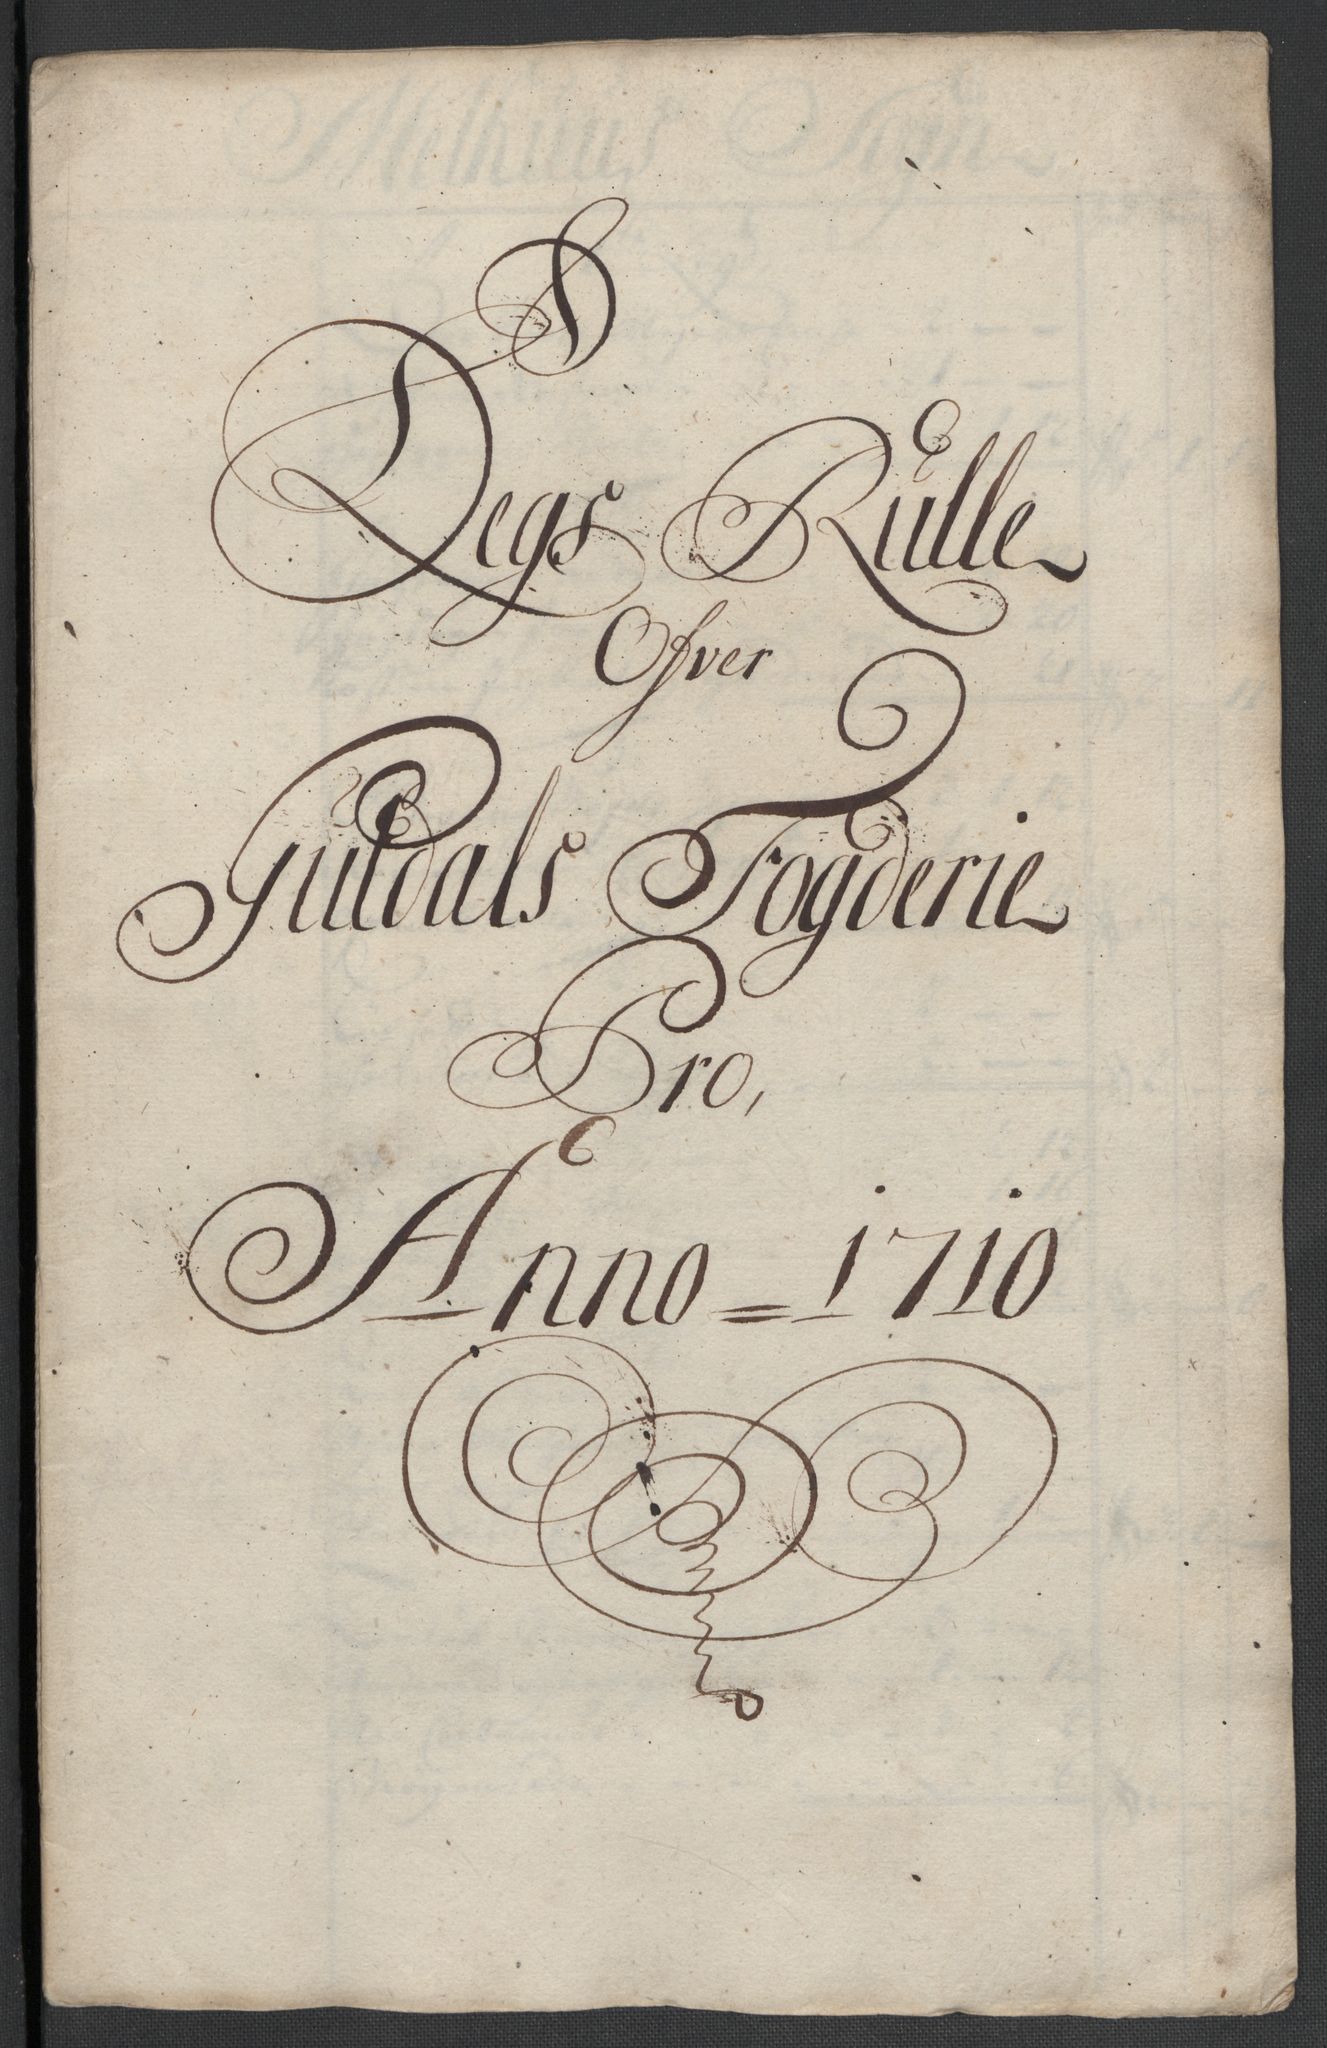 S
Qegs Rulle
Ofver
Guldals Fogderie
Pro,
Anno = 1710